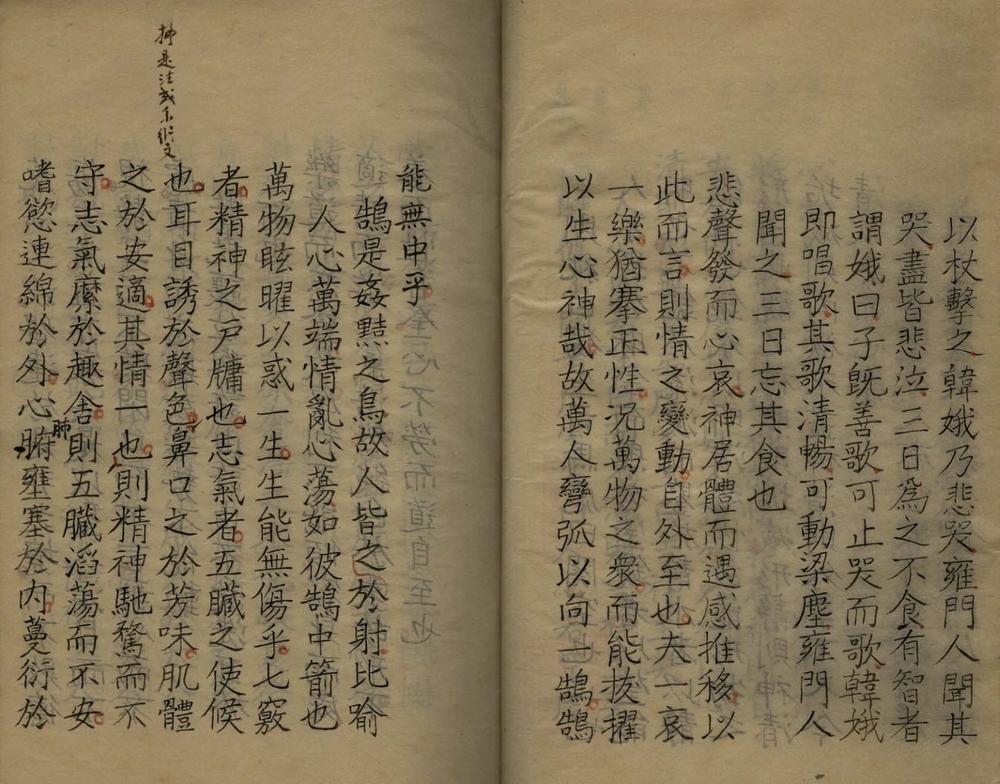 以杖擊之韓娥乃悲哭雍門人聞其
哭盡皆悲泣三日為之不食有智者
謂娥曰子既善歌可止哭而歌韓娥
即唱歌其歌清暢可動梁塵雍門人
聞之三日忘其食也
悲聲發而心哀神居體而遇感推移以
此而言則情之變動自外至也夫一哀
一樂猶搴正性况萬物之衆而能拔擢
以生心神哉故萬人彎弧以向一鵠鵠
能無中乎
鵠是姦黠之鳥故人皆之於射比喻
人心萬端情亂心蕩如彼鵠中箭也
萬物眩曜以惑一生生能無傷乎七竅
者精神之戶牖也志氣者五臟之使候
也耳目誘於聲色鼻口之於芳味肌體
之於安適其情一也則精神馳騖而不
守志氣縻於趣舍則五臟滔蕩而不安
嗜慾連綿於外心腑壅塞於內蔓衍於
肺